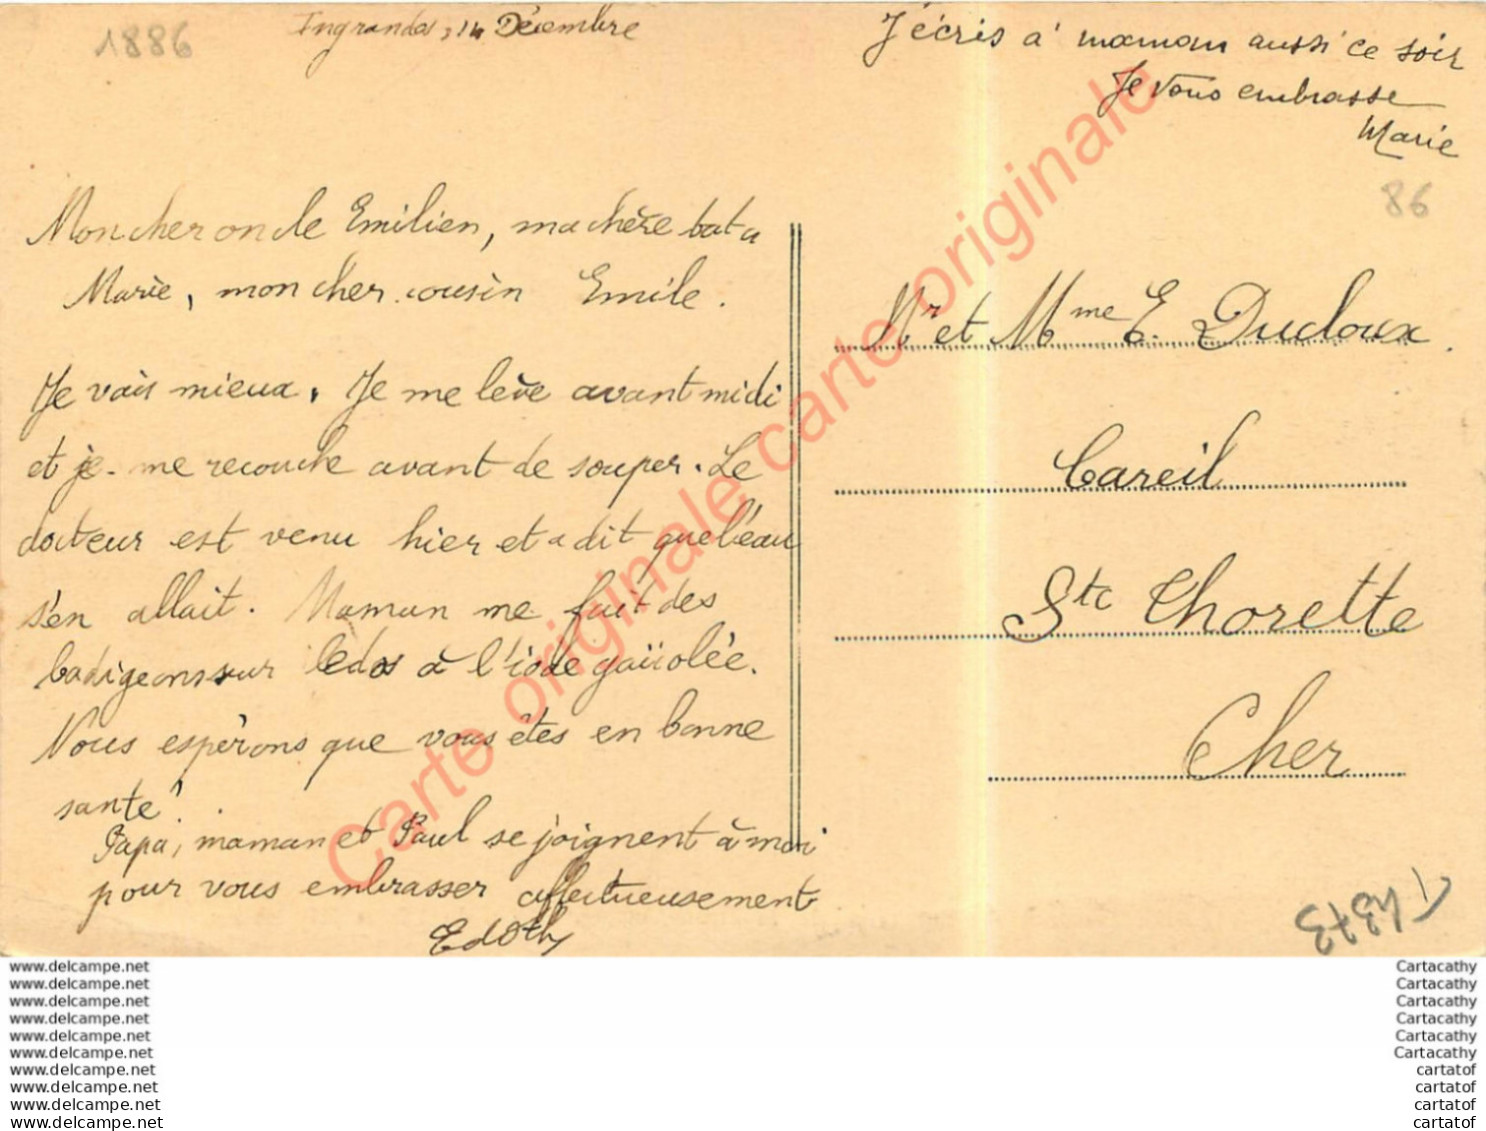 1886
Ingrandes, 14 Décembre
J'écris à maman aussi ce soir
Je vous embrasse
Marie
86
Mon cher oncle Emilien, ma chère tata
Marie, mon cher cousin Emile.
Je vais mieux. Je me lève avant midi
et je me recouche avant de souper. Le
docteur est venu hier et a dit que l'eau
s'en allait. Maman me fait des
badigeons sur le dos à l'iode gaïolée.
Nous espèrons que vous êtes en bonne
santé.
Papa, maman et Paul se joignent à moi
pour vous embrasser affectueusement
Mr et Mme E. Ducloux
Careil
Ste Thorette
Cher
T4373
Carte originale carte originale
www.delcampe.net
www.delcampe.net
www.delcampe.net
www.delcampe.net
www.delcampe.net
www.delcampe.net
www.delcampe.net
www.delcampe.net
www.delcampe.net
www.delcampe.net
Cartacathy
Cartacathy
Cartacathy
Cartacathy
Cartacathy
Cartacathy
cartatof
cartatof
cartatof
cartatof